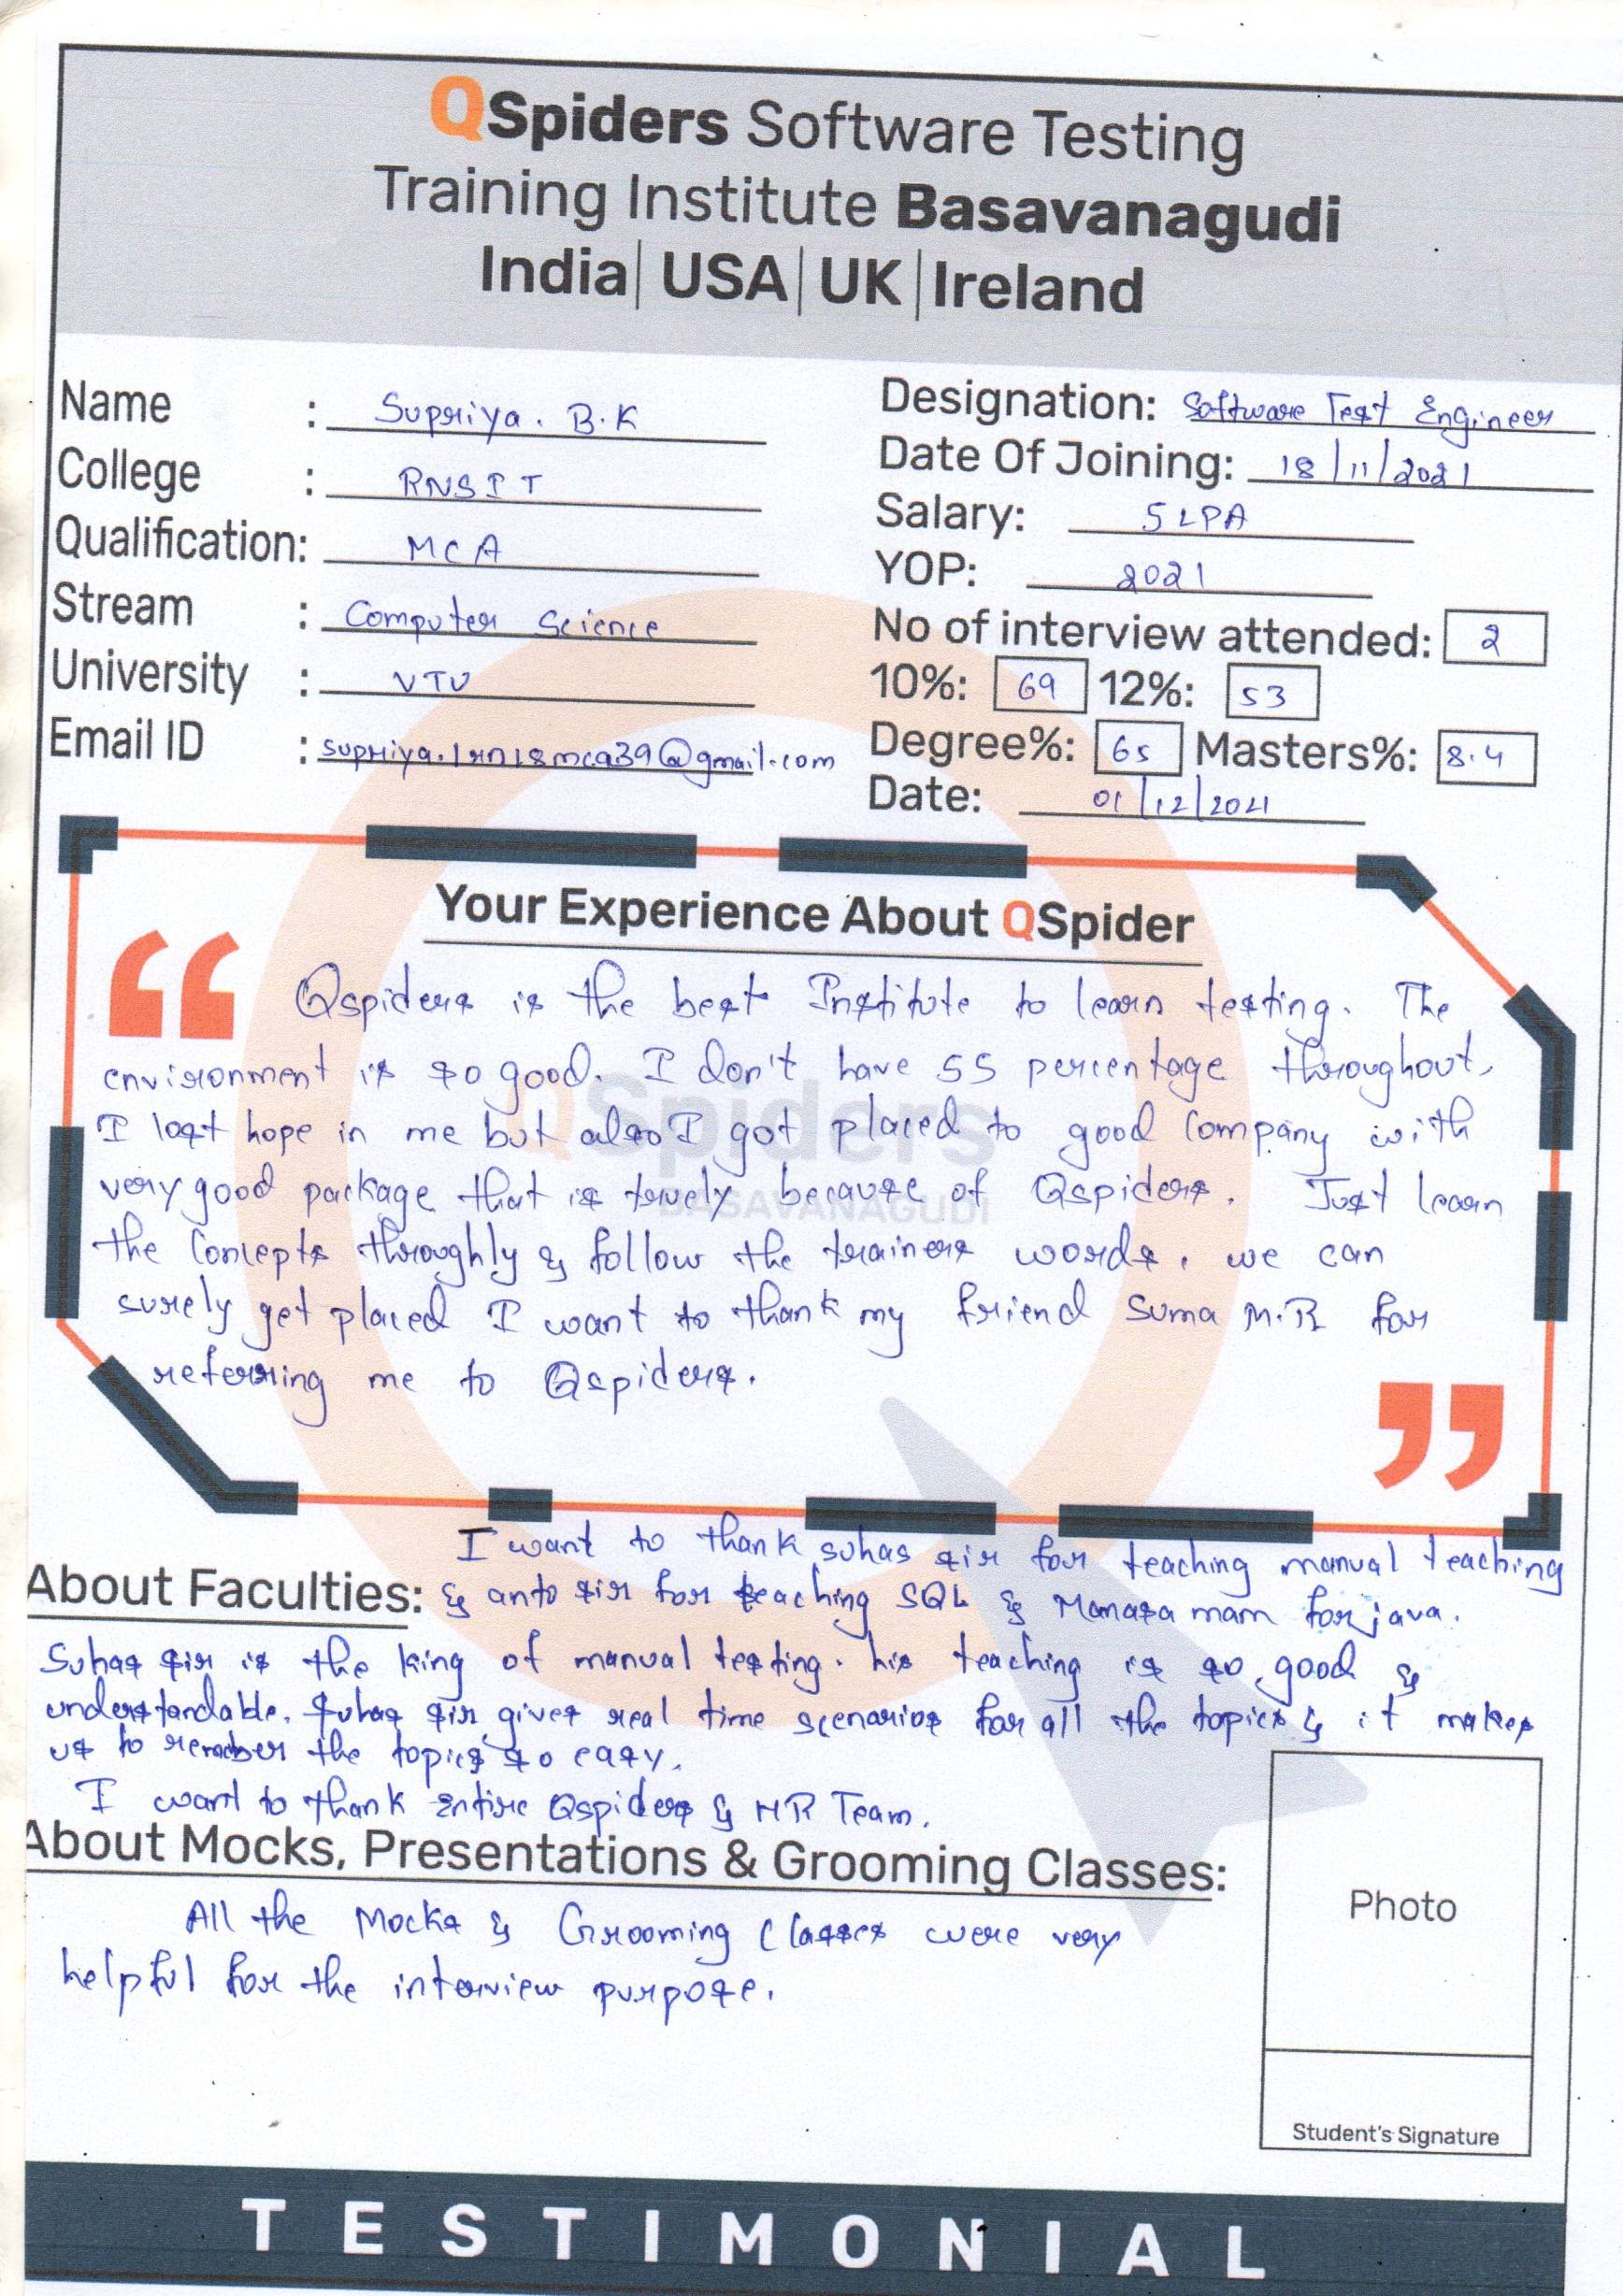 QSpiders Software Testing
Training Institute Basavanagudi
India| USA| UK| Ireland
Name : Supriya. B.K
College : RNSIT
Qualification: MCA
Stream : Computer Science
University : VTU
Email ID : supriya.1rn18mca39@gmail.com
Designation: Software Test Engineer
Date Of Joining: 18/11/2021
Salary: 5 LPA
YOP: 2021
No of interview attended: 2
10%: 69 12%: 53
Degree%: 65 Masters%: 8.4
Date: 01/12/2021
Your Experience About QSpider
“ Qspiders is the best Institute to learn testing. The
environment is so good. I don't have 55 percentage throughout,
I lost hope in me but also I got placed to good company with
very good package that is truely because of Qspiders. Just learn
the Concepts throughly & follow the trainers words, we can
surely get placed I want to thank my friend Suma M.R for
referring me to Qspiders.
”
QSpiders
BASAVANAGUDI
I want to thank suhas sir for teaching manual teaching
About Faculties: & anto sir for teaching SQL & Manasa mam for java.
Suhas sir is the king of manual testing. his teaching is so good &
understandable. Suhas sir gives real time scenarios for all the topics & it makes
us to remember the topics so easy.
I want to thank Entire Qspiders & HR Team.
About Mocks, Presentations & Grooming Classes:
All the Mocks & Grooming Classes were very
helpful for the interview purpose.
Photo
Student's Signature
TESTIMONIAL